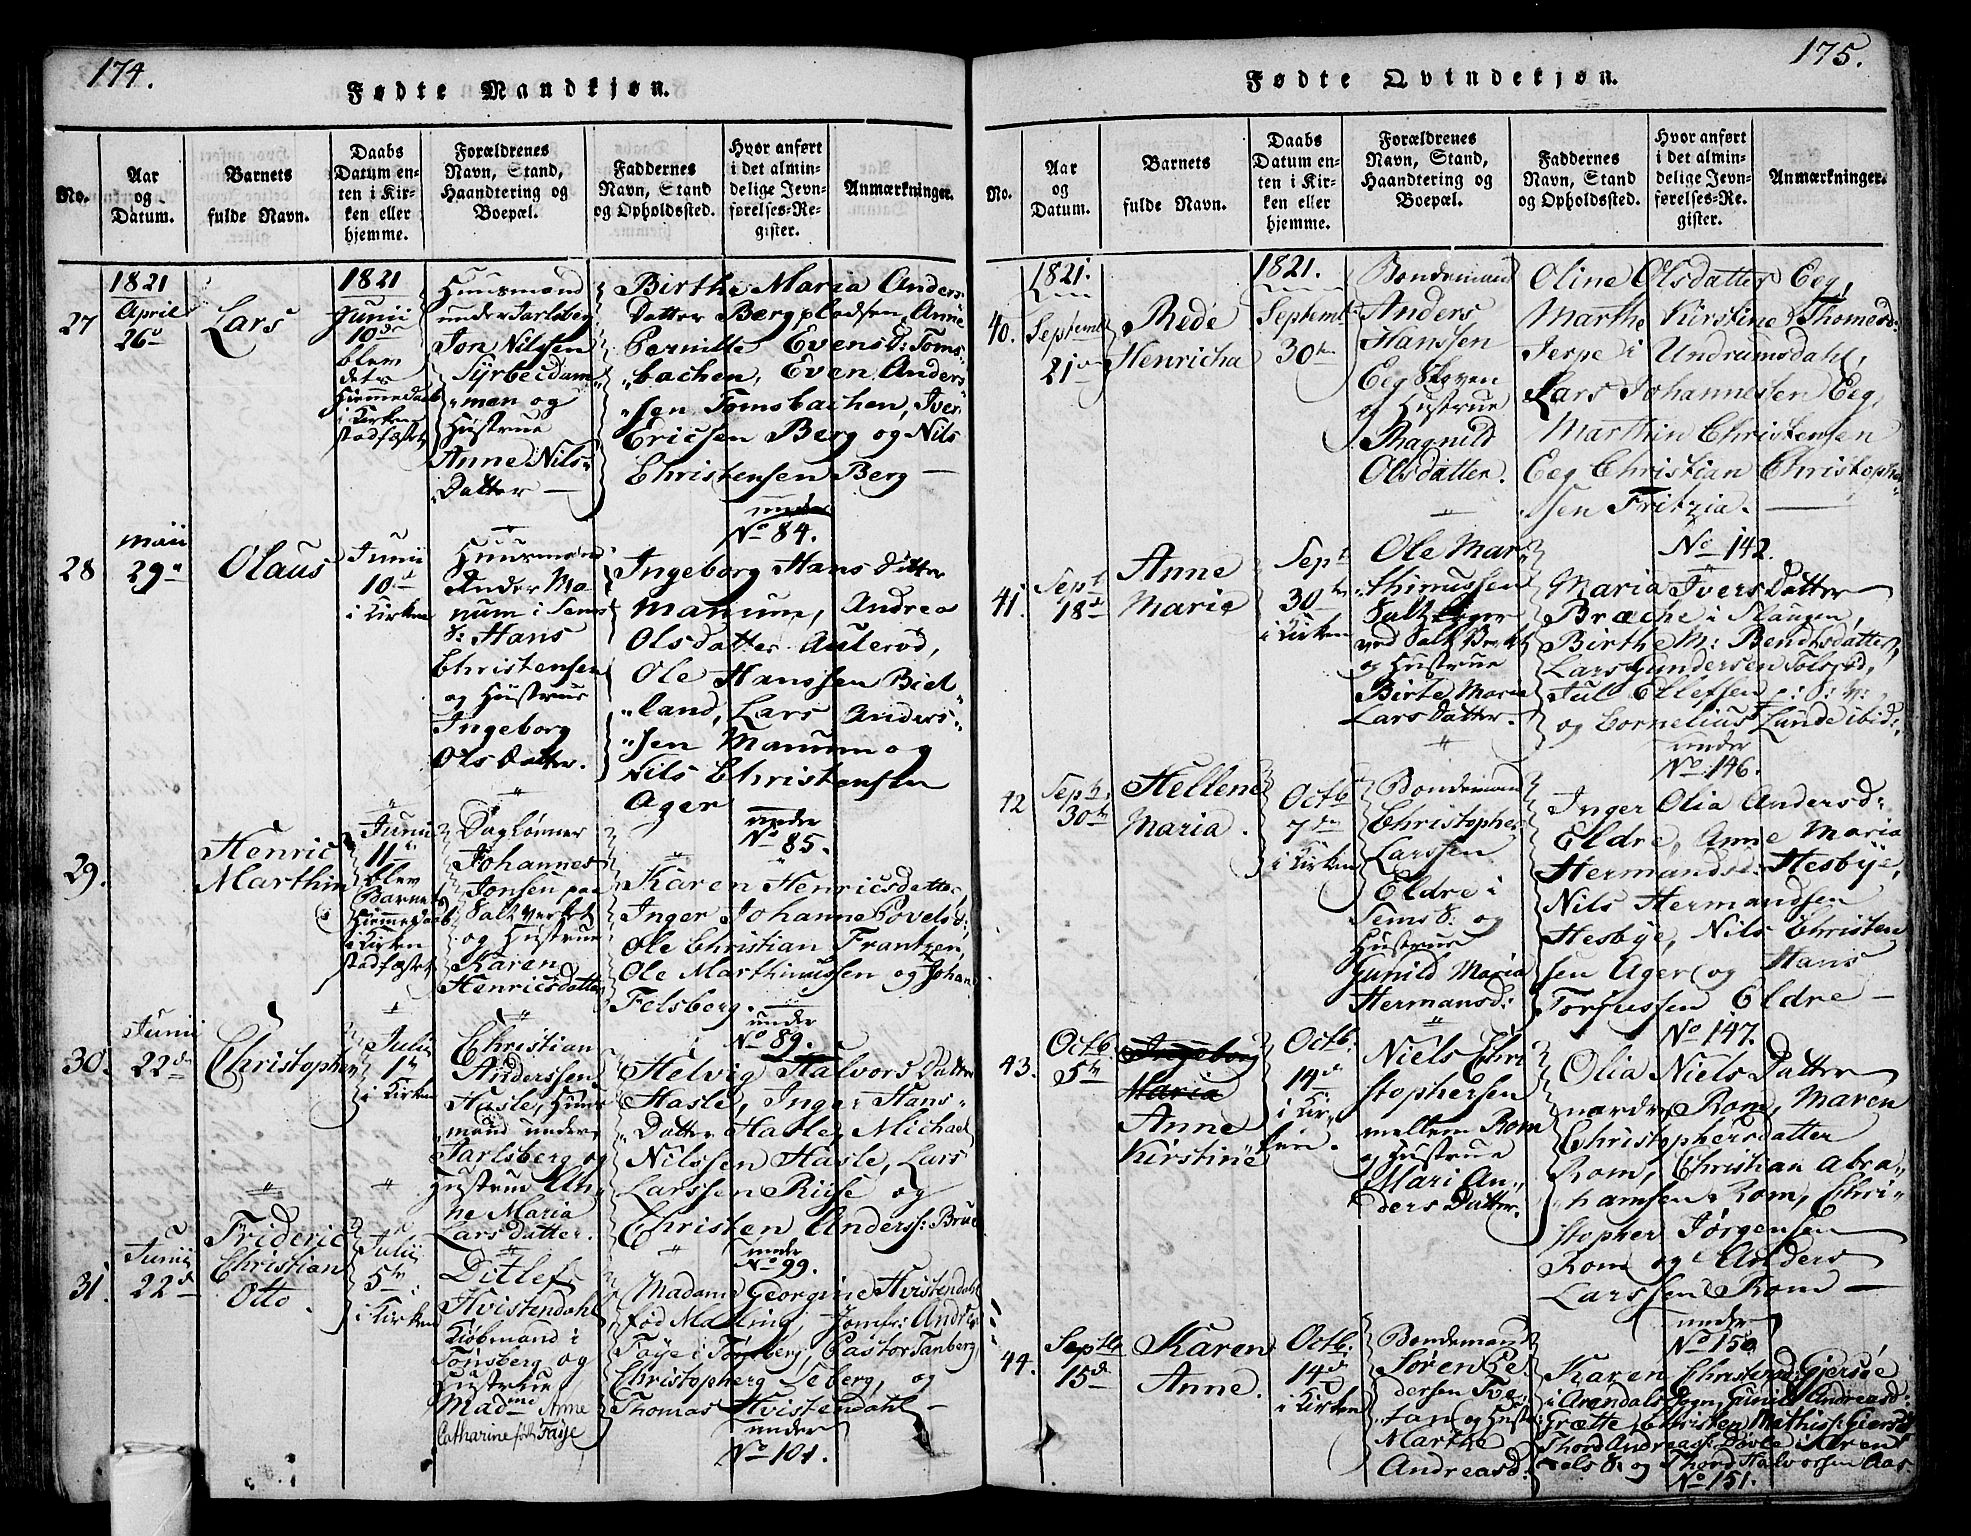 174.
Fødte Mandkjøn.
No.
Aar
og
Datum.
Barnets
fulde Navn.
Daabs
Datum en-
ten i Kir-
ken eller
hjemme.
Forældrenes
Navn, Stand,
Haandtering og
Boepæl.
Faddernes
Navn, Stand
og Opholdssted.
Hvor anført
i det almin-
delige Jevn-
førelses-Re-
gister.
Anmærkninger.
27
1821
April
26d
Lars
1821
Junii
10de
blev
dets
Hiemmedaab
i Kirken
stadfæstet
Huusmand
under Jarlsberg
Jon Nilsen
Syrbecdam-
"men og
Hustrue
Anne Nils-
Datter —
Birthe Maria Anders
Datter Bergpladsen, Anne
Pernille Evensd: Toms-
"bachen, Even Anders-
"sen Tomsbachen, Iver
Ericsen Berg og Nils
Christensen Berg —
under
No 84.
28
Maii
29d
Olaus
Junii
10d
i Kirken
Huusmand
under Ma-
num i Sems
S: Hans
Christensen
og Hustrue
Ingeborg
Olsdatter.
Ingeborg Hans Datter
Manum, Andrea
Olsdatter Aulerød,
Ole Hanssen Biel-
"land, Lars Anders-
"sen Manum og
Nils Christensen
Ager
under
No 85.
29.
Henric
Marthin
Junii
11d
blev
Barnets
Hiemmedaab
i Kirken
stadfæstet
Daglønner
Johannes
Jonsen paa
Saltverket
og Hustrue
Karen
Henricsdatter
Karen Henricsdatter,
Inger Johanne Povelsd:,
Ole Christian Frantzen,
Ole Marthinussen og Johan
Felsberg.
under
No 89.
30.
Junii
22d
Christopher
Julii
1te
i Kirken
Christian
Anderssen
Hasle, Huus-
"mand under
Jarlsberg og
Hustrue An-
ne Maria
Larsdatter.
Helvig Halvors Datter
Hasle, Inger Hans-
"Datter Hasle, Michael
Nilssen Hasle, Lars
Larssen Riise og
Christen Anderss: Brue
under
No 99.
31
Junii
22d
Frideric
Christian
Otto.
Julii
5te
i Kirken
Ditlef
Hvistendahl
Kiøbmand i
Tønsberg og
Hustrue
Madme Anne
Catharine født Faÿe
Madam Georgine Hvistendahl
fød Malling, Jomfr: Andrea
Faÿe i Tønsberg, Pastor Tanberg
Christopherg Seberg, og
Thomas Hvistendahl —
under
No 101.
175.
Fødte Qvindekjøn.
No.
Aar
og
Datum.
Barnets
fulde Navn.
Daabs
Datum en-
ten i Kir-
ken eller
hjemme.
Forældrenes
Navn, Stand,
Haandtering og
Boepæl.
Faddernes
Navn, Stand
og Opholdssted.
Hvor anført
i det almin-
delige Jevn-
førelses-Re-
gister.
Anmærkninger.
40.
1821.
Septembr
21de
Rede
Henricha
1821.
Septembr
30te
Bondemand
Anders
Hanssen
Eeg Skoven
og Hustrue
Ragnild
Olsdatter.
Oline Olsdatter Eeg,
Marthe Kirstine Thomesd:
Jerpe i Undrumsdahl,
Lars Johannesen Eeg,
Marthin Christensen
Eeg Christian Christopher-
"sen Fritzia. —
No 142.
41.
Sept
18d
Anne
Marie
Sept
30te
i Kirken
Ole Mar-
"thinussen
ved Salt Verket
og Hustrue
Birte Marie
Lars Datter.
Maria Ivers Datter
Bræche i Slaugen,
Birthe M: Bendtsdatter,
Lars Gundersen Solsrød,
Jul Ellefsen
og Cornelius Lunde ibid:
under
No 146.
42
Septr
30te
Hellene
Maria.
Octb
7de
i Kirken
Bondemand
Christopher
Larssen
Eldre i
Sems S: og
Hustrue
Gunild Maria
Hermansd:
Inger Olia Andersd:
Eldre, Anne Maria
Hermandsd: Hesbÿe,
Nils Hermandsen
Hesbÿe, Nils Christen
sen Ager og Hans
Torfussen Eldre —
No 147.
43.
Octb
5te
Ingeborg
Maria
Anne
Kirstine
Octb:
14de
i Kir-
ken.
Niels Chri
stophersen
mellem Rom
og Hustrue
Mari An-
ders Datter.
Olia Niels Datter
nordre Rom, Maren
Christophersdatter
Rom, Christian Abra-
hamsen Rom, Chri-
stopher Jørgensen
Rom og Anders
Larssen Rom —
under
No 150
44.
Septb
15d
Karen
Anne.
Octb:
14d
i Kirken
Bondemand
Søren Pe
dersen Tve-
"tan og Hustr
Marthe
Andreasd:
Karen Christensd: Gjersøe
i Arendals Sogn, Gunild Andreasd:
Grætte, Christen Mathiss: Giersøe
Thord Andreass: Døvle i Aren
dels S: og Thord Halvorsen Aas.
No 151.